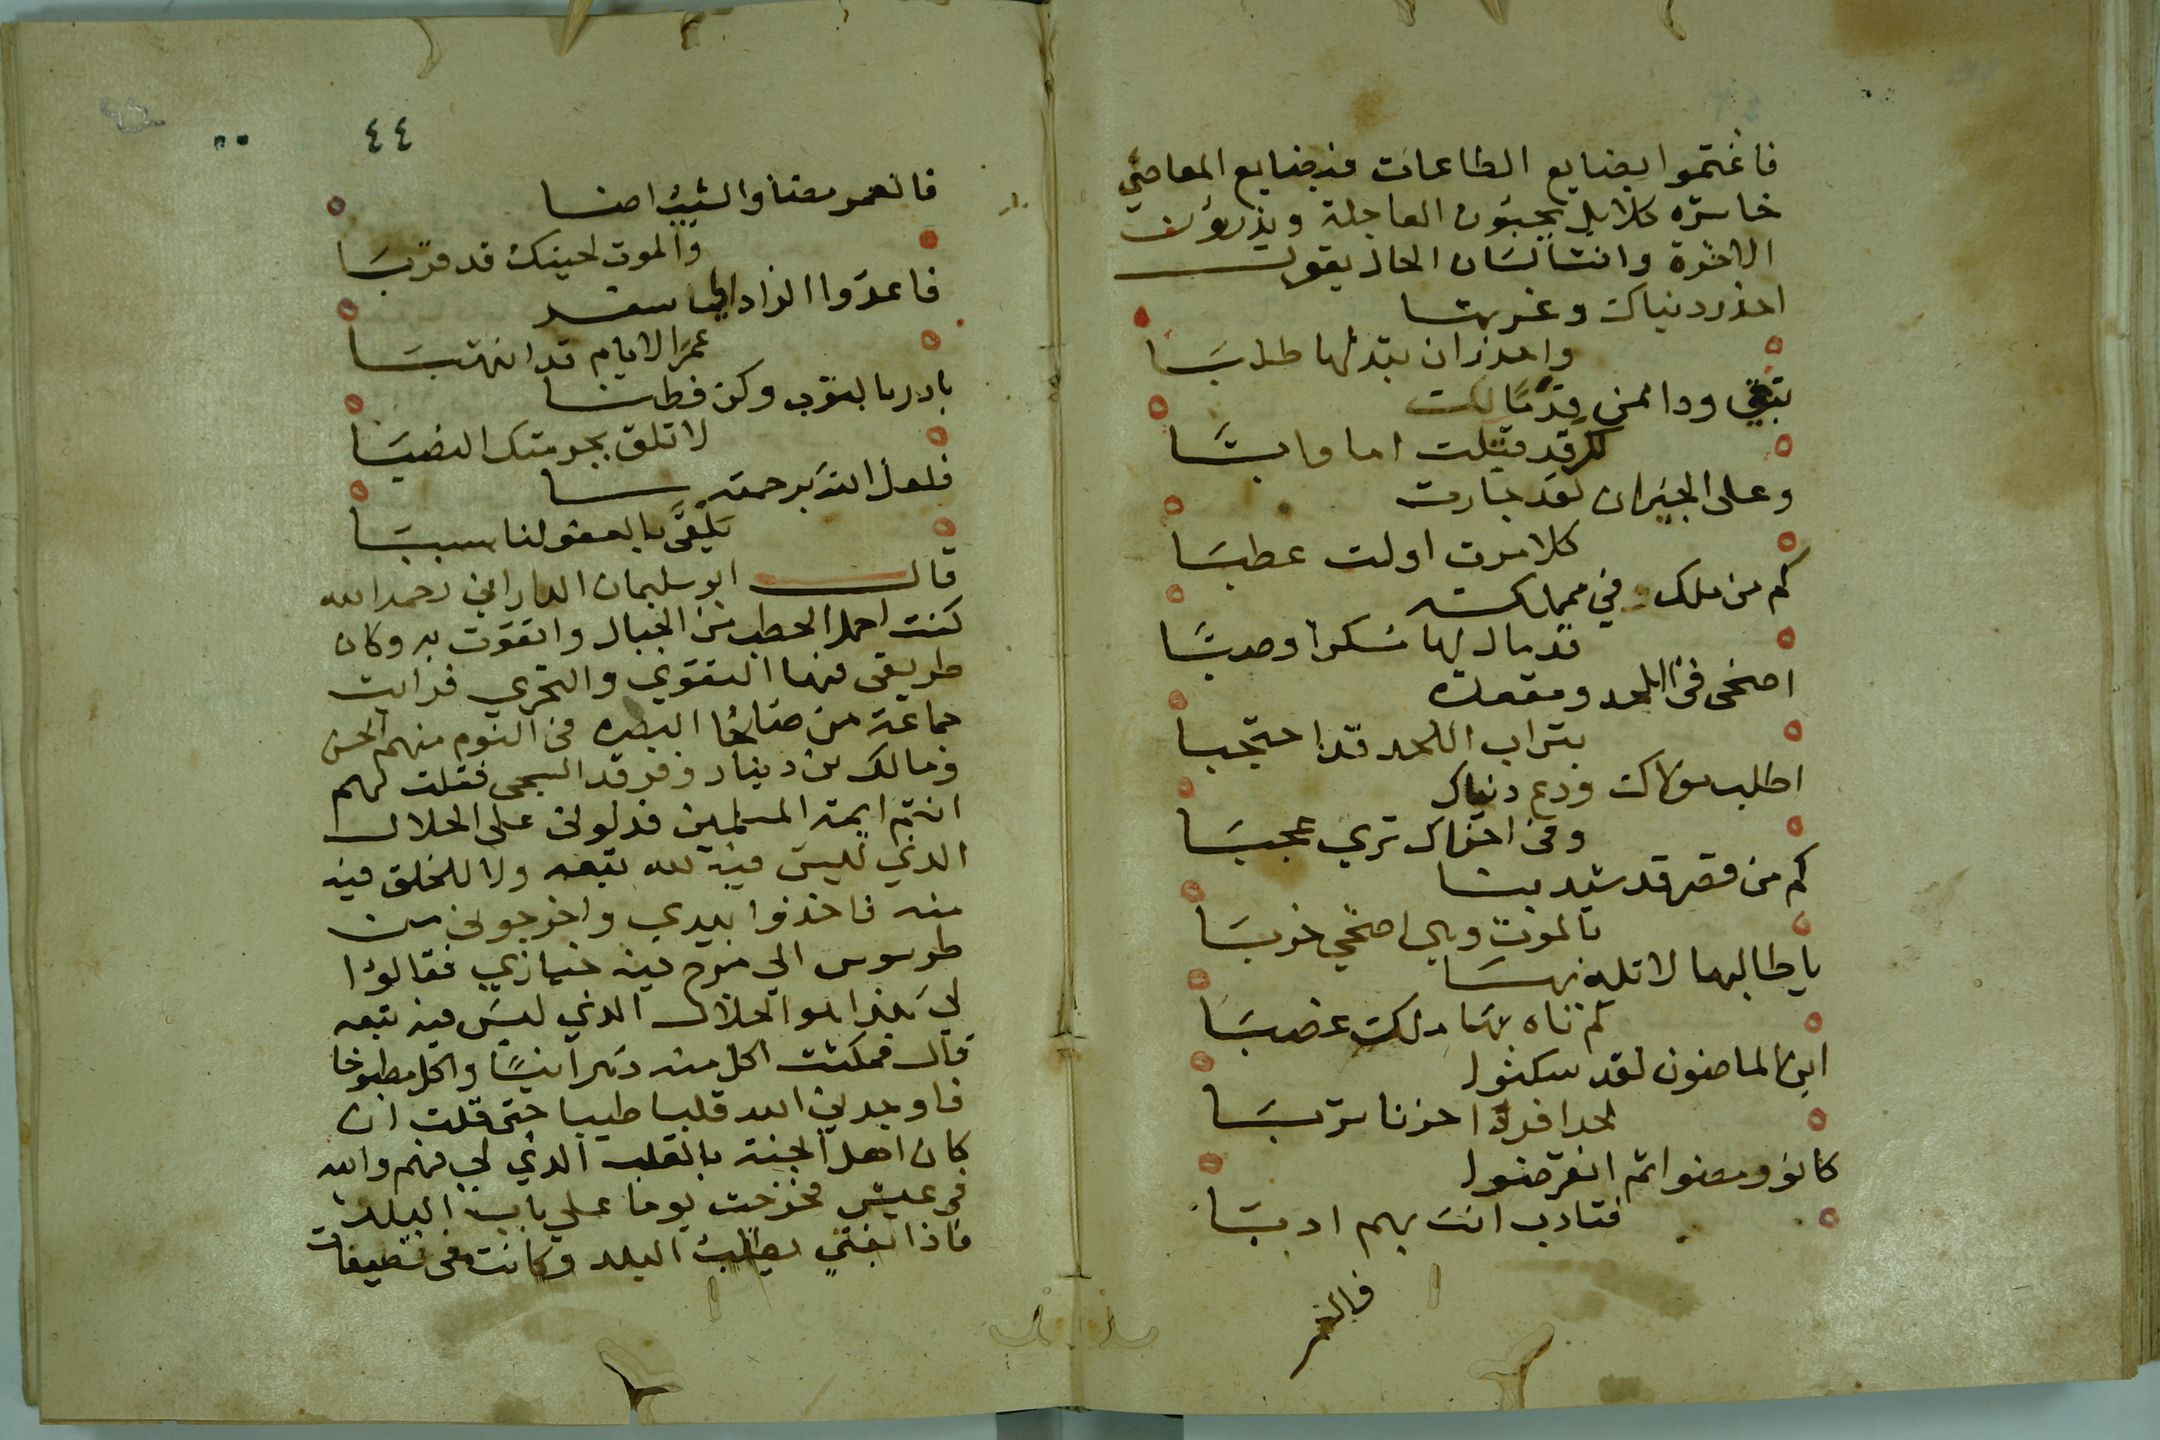 فاغتموا بضايع الطاعات فبضايع المعاصي
خاسره كلا بل يحبون العاجلة ويذرون
الاخرة وانشا لسان الحال يقول
احذر دنياك وغربها
واحذر ان بتدلها طلبا
تبغي ودا لمن قدما
قد قتلت اما وابا
وعلى الجيران لقد جارت
كلا مرت اولت عطبا
كم من ملك في مملكته
قد مال لها سكرا وصبا
اضحى في اللحد ومقعده
بتراب اللحد قد احتجبا
اطلب مولاك ودع دنياك
وفي اخراك تري عجبا
كم من قصر قد شيد بنا
بالموت وبي اضحي خربا
يا طالبها لا تله بها
كم تاه بها ملك غضبا
اين الماضون لقد سكنوا
لحدا فردا احزنا تربا
كانو ومضوا ثم انقرضوا
فتادب انت بهم ادبا
فالعمر
٤٤
فالعمر مضا والشيب اضا
والموت لحينك قد قربا
فاعدوا الزاد الي سفر
عمر الايام قد انتهبا
بادر بالتوب وكن فطنا
لا تلق بجرمتك النصبا
فلعل الله برحمته
يلقي بالعفو لنا سببا
قال ابو سليمان الداراني رحمه الله
كنت احمل الحطب من الجبال واتقوت به وكان
طريقى فيها التقوي والتحري فرايت
جماعة من مشايخ البصره فى النوم منهم الحسن
ومالك بن دينار وفرقد السبخى فقلت لهم
انتم ايمة المسلمين فدلونى على الحلال
الذي ليس فيه لله تبعه ولا للخلق فيه
منه فاخذوا بيدي واخرجونى من
طرسوس الي مرج فيه خبازي فقالوا
لي هذا هو الحلال الذي ليس فيه تبعه
قال فمكثت اكل منه دهرا نيا واكل مطبوخا
فاوجدني الله قلبا طيبا حتى قلت ان
كان اهل الجنة بالقلب الذي لي فهم والله
في عيش فخرجت يوما على باب البلد
فاذا بفتى يطلب البلد وكانت فى قطيفات